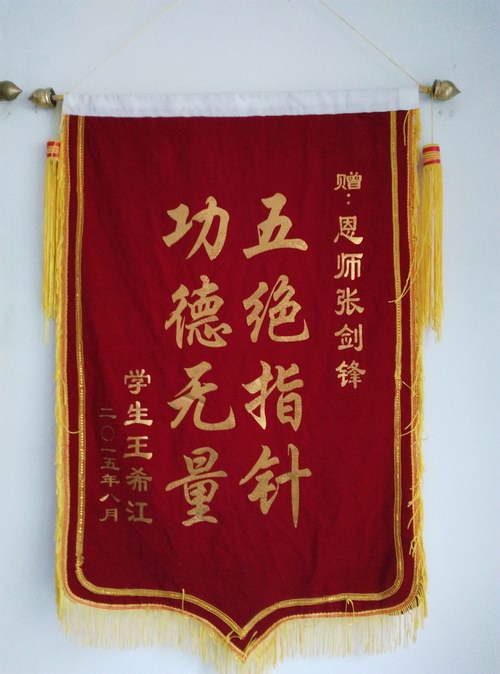 赠：恩师张剑锋
五绝指针
功德无量
学生王希江
二〇一五年八月